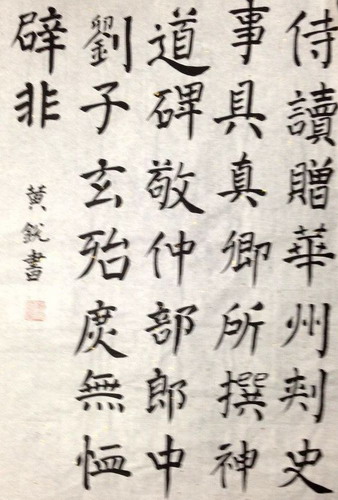 侍讀贈華州刾史
事具真卿所撰神
道碑敬仲部郎中
劉子玄殆庻無恤
辟非
黄鋭書